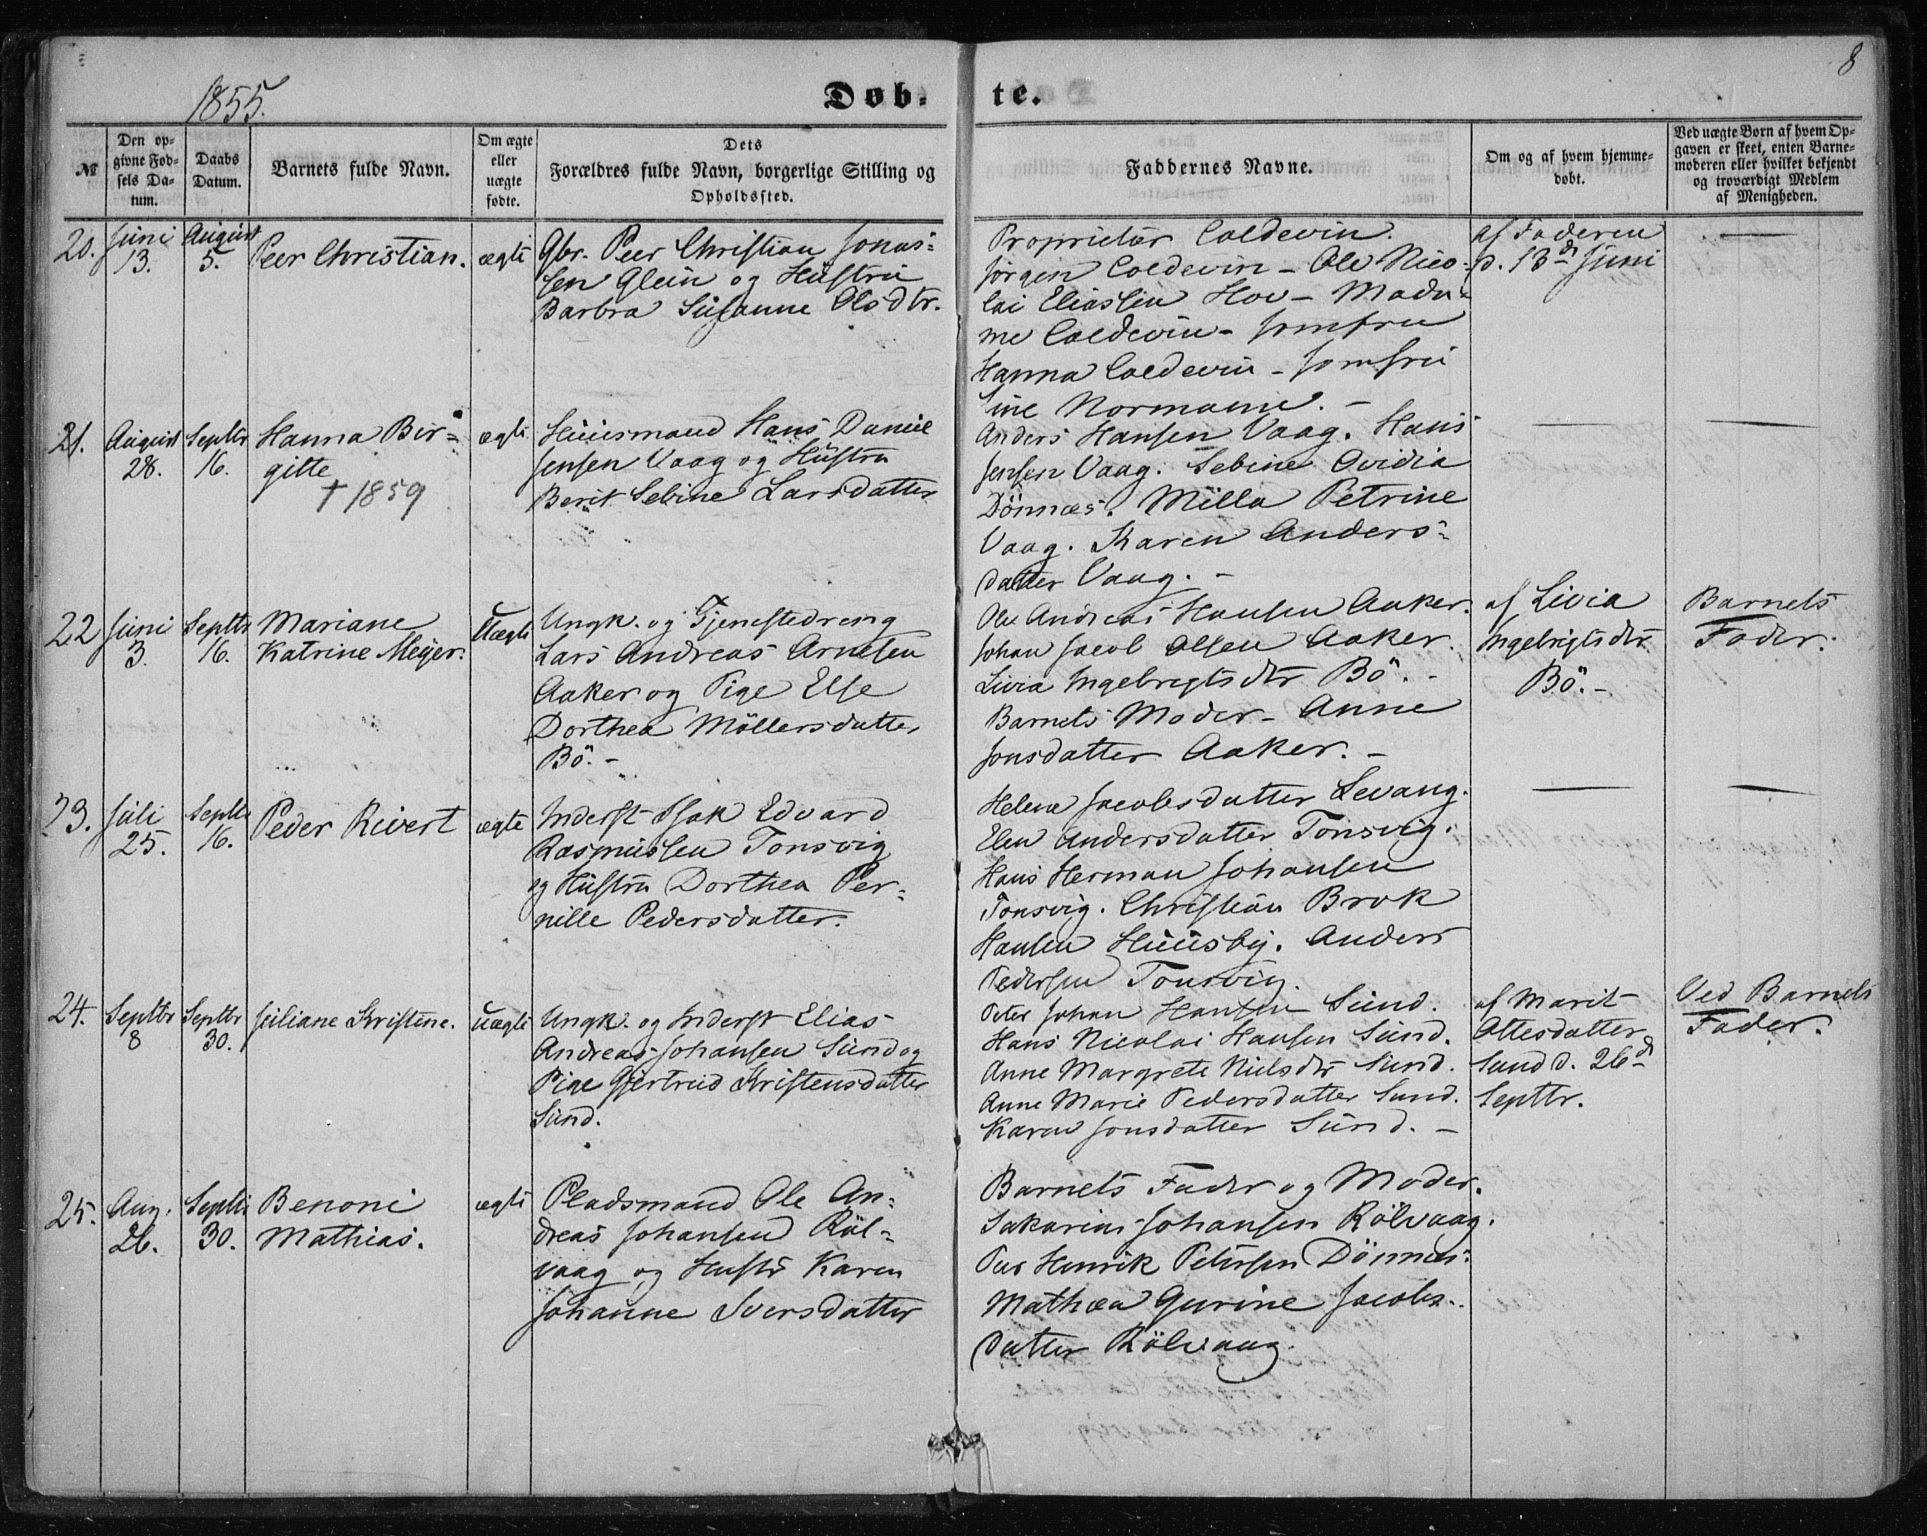 8
1855.
Døb-
te.
№
Den op-
givne Fød-
sels Da-
tum.
Daabs
Datum.
Barnets fulde Navn.
Om ægte
eller
uægte
fødte.
Dets
Forældres fulde Navn, borgerlige Stilling og
Opholdssted.
Faddernes Navne.
Om og af hvem hjemme-
døbt.
Ved uægte Børn af hvem Op-
gaven er skeet, enten Barne-
moderen eller hvilket bekjendt
og troværdigt Medlem
af Menigheden.
20.
Juni
13.
August
5.
Peer Christian.
ægte
Gbr. Peer Christian Jonas-
sen Glein og Hustru
Barbra Susanne Olsdtr.
Proprietær Coldevin.
Jørgen Coldevin - Ole Nico-
lai Eliassen Hov - Mada-
me Coldevin - Jomfru
Hanna Coldevin - Jomfru
Sine Normann. -
af Faderen
d. 13de Juni
21.
August
28.
Septbr
16.
Hanna Bir-
gitte
† 1859
ægte
Huusmand Hans Daniel
Jensen Vaag og Hustru
Berit Sebine Larsdatter
Anders Hansen Vaag. Hans
Jensen Vaag. Sebine Ovidia
Dönnæs. Milla Petrine
Vaag. Karen Anders-
datter Vaag. -
22
Juni
3.
Septbr
16.
Mariane
Katrine Meyer.
Uægte
Ungk. og Tjenestedreng
Lars Andreas Arntsen
Aaker og Pige Else
Dorthea Möllersdatter
Bö. -
Ole Andreas Hansen Aaker.
Johan Jacob Olsen Aaker.
Livia Ingebrigtsdtr Bö. -
Barnets Moder - Anne
Jonsdatter Aaker. -
af Livia
Ingebrigtsdtr
Bö. -
Barnets
Fader.
23.
Juli
25.
Septbr
16.
Peder Rivert
ægte
Inderst Isak Edvard
Rasmussen Tonsvig
og Hustru Dorthea Per-
nille Pedersdatter.
Helene Jacobsdatter Levang.
Elen Andersdatter Tonsvig.
Hans Herman Johansen
Tonsvig. Christian Brok
Hansen Huusby. Anders
Pedersen Tonsvig.
24.
Septbr
8
Septbr
30.
Juliane Kristine.
Uægte
Ungk. og Inderst Elias
Andreas Johansen Sund og
Pige Gjertrud Kristensdatter
Sund.
Peter Johan Hansen Sund.
Hans Nicolai Hansen Sund.
Anne Margrete Nielsdtr Sund.
Anne Marie Pedersdatter Sund.
Karen Jonsdatter Sund. -
af Marit
Ottesdatter
Sund d. 26de
Septbr.
Ved Barnets
Fader.
25.
Aug.
26.
Septbr
30.
Benoni
Mathias.
ægte
Pladsmand Ole An-
dreas Johansen Röl-
vaag og Hustr Karen
Johanne Iversdatter
Barnets Fader og Moder.
Sakarias Johansen Rölvaag.
Peer Henrik Petersen Dönnæs.
Mathea Gurine Jacobs-
datter Rölvaag.